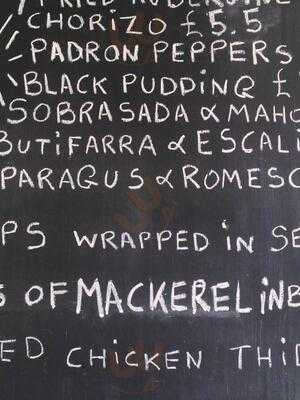 FRIED AUBERGINE
CHORIZO £5.5
PADRON PEPPERS
BLACK PUDDING £
SOBRASADA & MAHO
BUTIFARRA & ESCALI
PARAGUS & ROMESC
PS WRAPPED IN SE
S OF MACKEREL IN B
ED CHICKEN THI